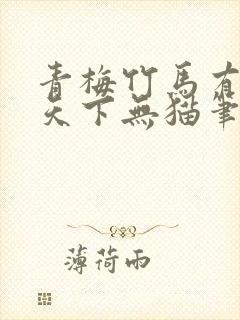 青梅竹馬有
天下無貓筆
薄荷雨